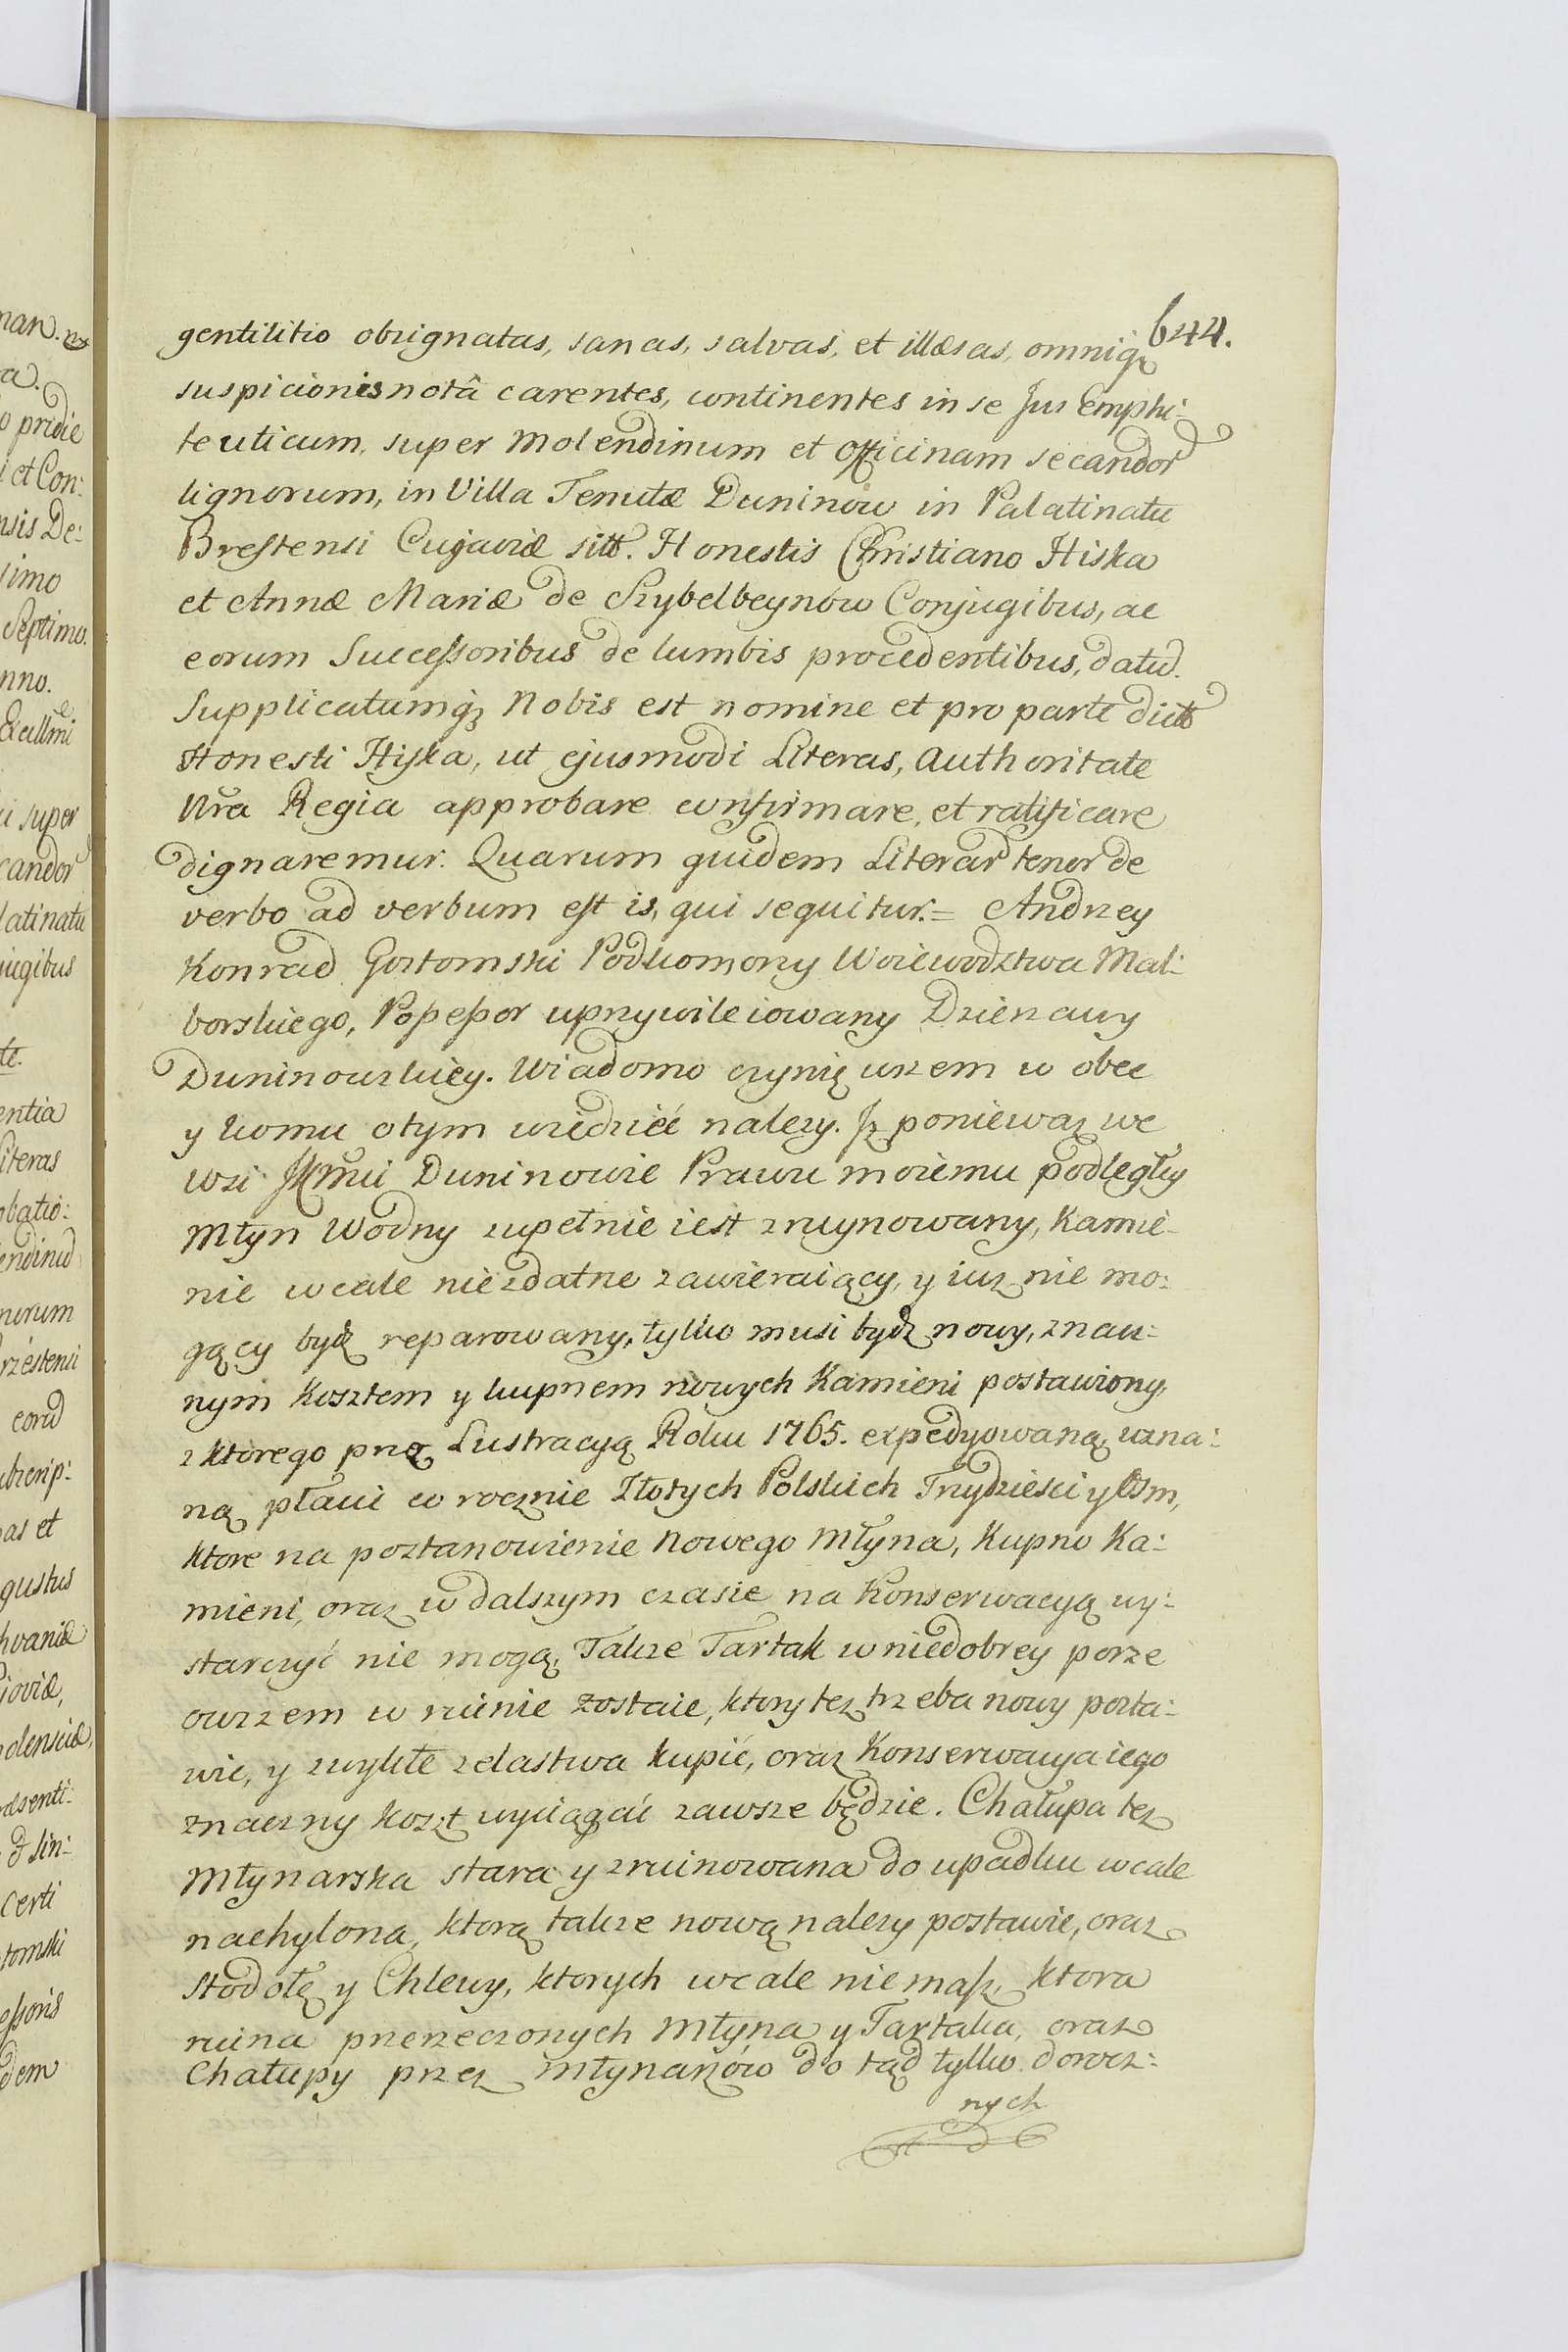 644.
gentilitio obsignatas, sanas, salvas, et illæsas, omniq
suspicionis notâ carentes, continentes in se Jus Emphi-
teuticum, super Molendinum et Officinam secandor
lignorum, in Villa Tenutæ Duninow in Palatinatu
Brestensi Cujaviæ sitt. Honestis Christiano Hiska
et Annæ Mariæ de Szybelbeynów Conjugibus, ac
eorum Successoribus de lumbis procedentibus, datu.
Supplicatumq Nobis est nomine et pro parte dictt
Honesti Hiska, ut ejusmodi Literas, Authoritate
Nra Regia approbare confirmare, et ratificare
dignaremur. Quarum quidem Literar tenor de
verbo ad verbum est is, qui sequitur.= Andrzey
Konrad Gostomski Podkomorzy Woiewodztwa Mal-
borskiego, Possessor uprzywileiowany Dzierzawy
Duninowskiey. Wiadomo czynię wszem w obec
y komu o tym wiedzieć nalezy. Jz poniewaz we
wsi JKmci Duninowie Prawu moiemu podległey
Młyn Wodny zupełnie iest zruynowany, Kamie-
nie wcale niezdatne zawieraiący, y iusz nie mo:
gący bydz reparowany, tylko musi bydz nowy, znacz:
nym kosztem y kupnem nowych Kamieni postawiony,
z ktorego przez Lustracyą Roku 1765. expedyowaną uzna:
ną płaci co rocznie Złotych Polskich Trzydziesci y Osm,
ktore na postanowienie Nowego Młyna, Kupno Ka:
mieni, oraz w dalszym czasie na Konserwacyą wy:
starczyć nie mogą, Takze Tartak w niedobrey porze
owszem w ruinie zostaie, ktory tez trzeba nowy posta:
wic, y zwykłe zelastwa kupić, oraz Konserwacya iego
znaczny koszt wyciągać zawsze będzie. Chałupa tez
Młynarska stara y zruinowana do upadku wcale
nachylona, ktorą takze nową nalezy postawic, oraz
Stodołę y Chlewy, ktorych wcale niemasz, ktora
ruina przerzeczonych Młyna y Tartaka, oraz
Chałupy przez Młynarzów do tąd tylko dorocz:
nych